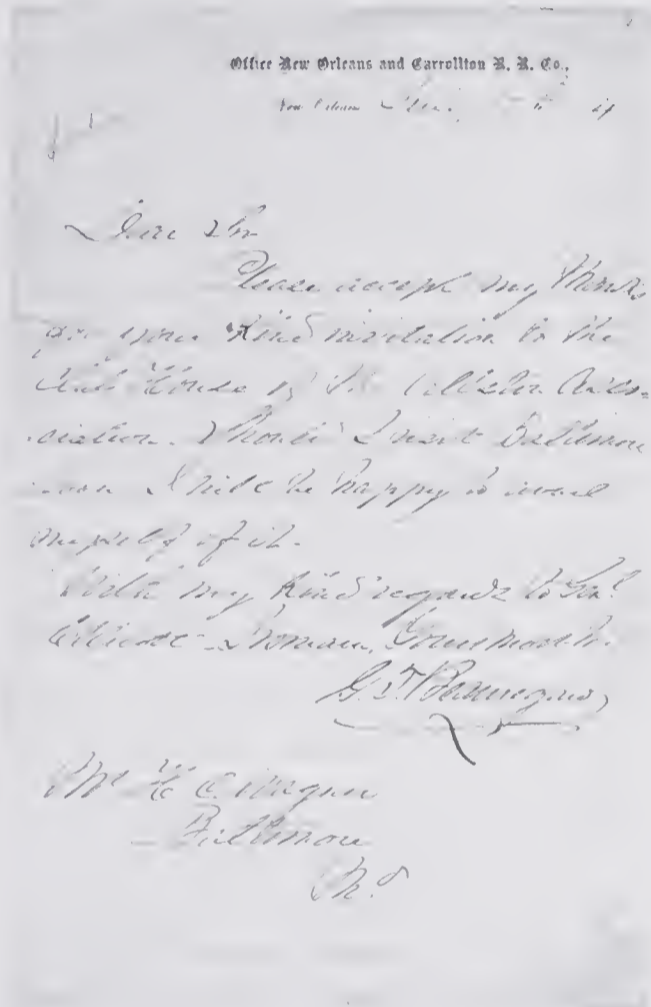 Office New Orleans and Carrollton R. R. Co.,
New Orleans
Dear Sir
Please accept my thanks
for your kind invitation to the
Club House of the
ciation. Should I visit Baltimore
soon I will be happy to avail
myself of it.
With my kind regards to Genl
I remain, Yours most tr.
G. T. Beauregard
Mr C. C.
Baltimore
Md